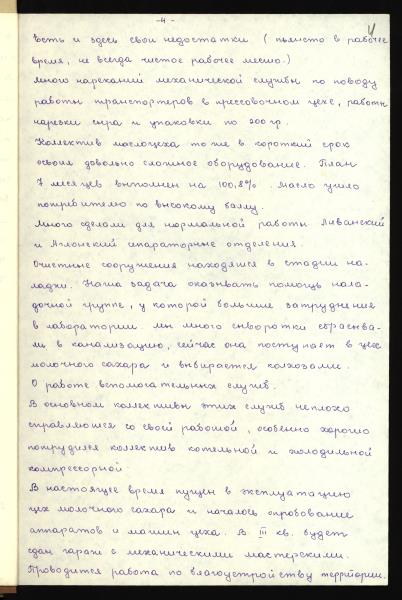 - 4 -
4
Есть и здесь свои недостатки ( пьянство в рабочее
время, не всегда чистое рабочее место.)
Много нареканий механической службы по поводу
работы транспортеров в прессовочном цехе, работы
нарезки сыра и упаковки по 200 гр.
Коллектив маслоцеха тоже в короткий срок
освоил довольно сложное оборудование. План
7 месяцев выполнен на 100,8%. Масло ушло
потребителю по высокому баллу.
Много сделали для нормальной работы Ливанский
и Аглонский сепараторные отделения.
Очистные сооружения находятся в стадии на-
ладки. Наша задача оказывать помощь нала-
дочной группе, у которой большие затруднения
в лаборатории. Мы много сыворотки сбрасыва-
ли в канализацию, сейчас она поступает в цех
молочного сахара и выбирается колхозами.
О работе вспомогательных служб.
В основном коллективы этих служб неплохо
справляются со своей работой, особенно хорошо
потрудился коллектив котельной и холодильной
компрессорной.
В настоящее время пущен в эксплуатацию
цех молочного сахара и началось опробование
аппаратов и машин цеха. В III кв. будет
сдан гараж с механическими мастерскими.
Проводится работа по благоустройству территории.